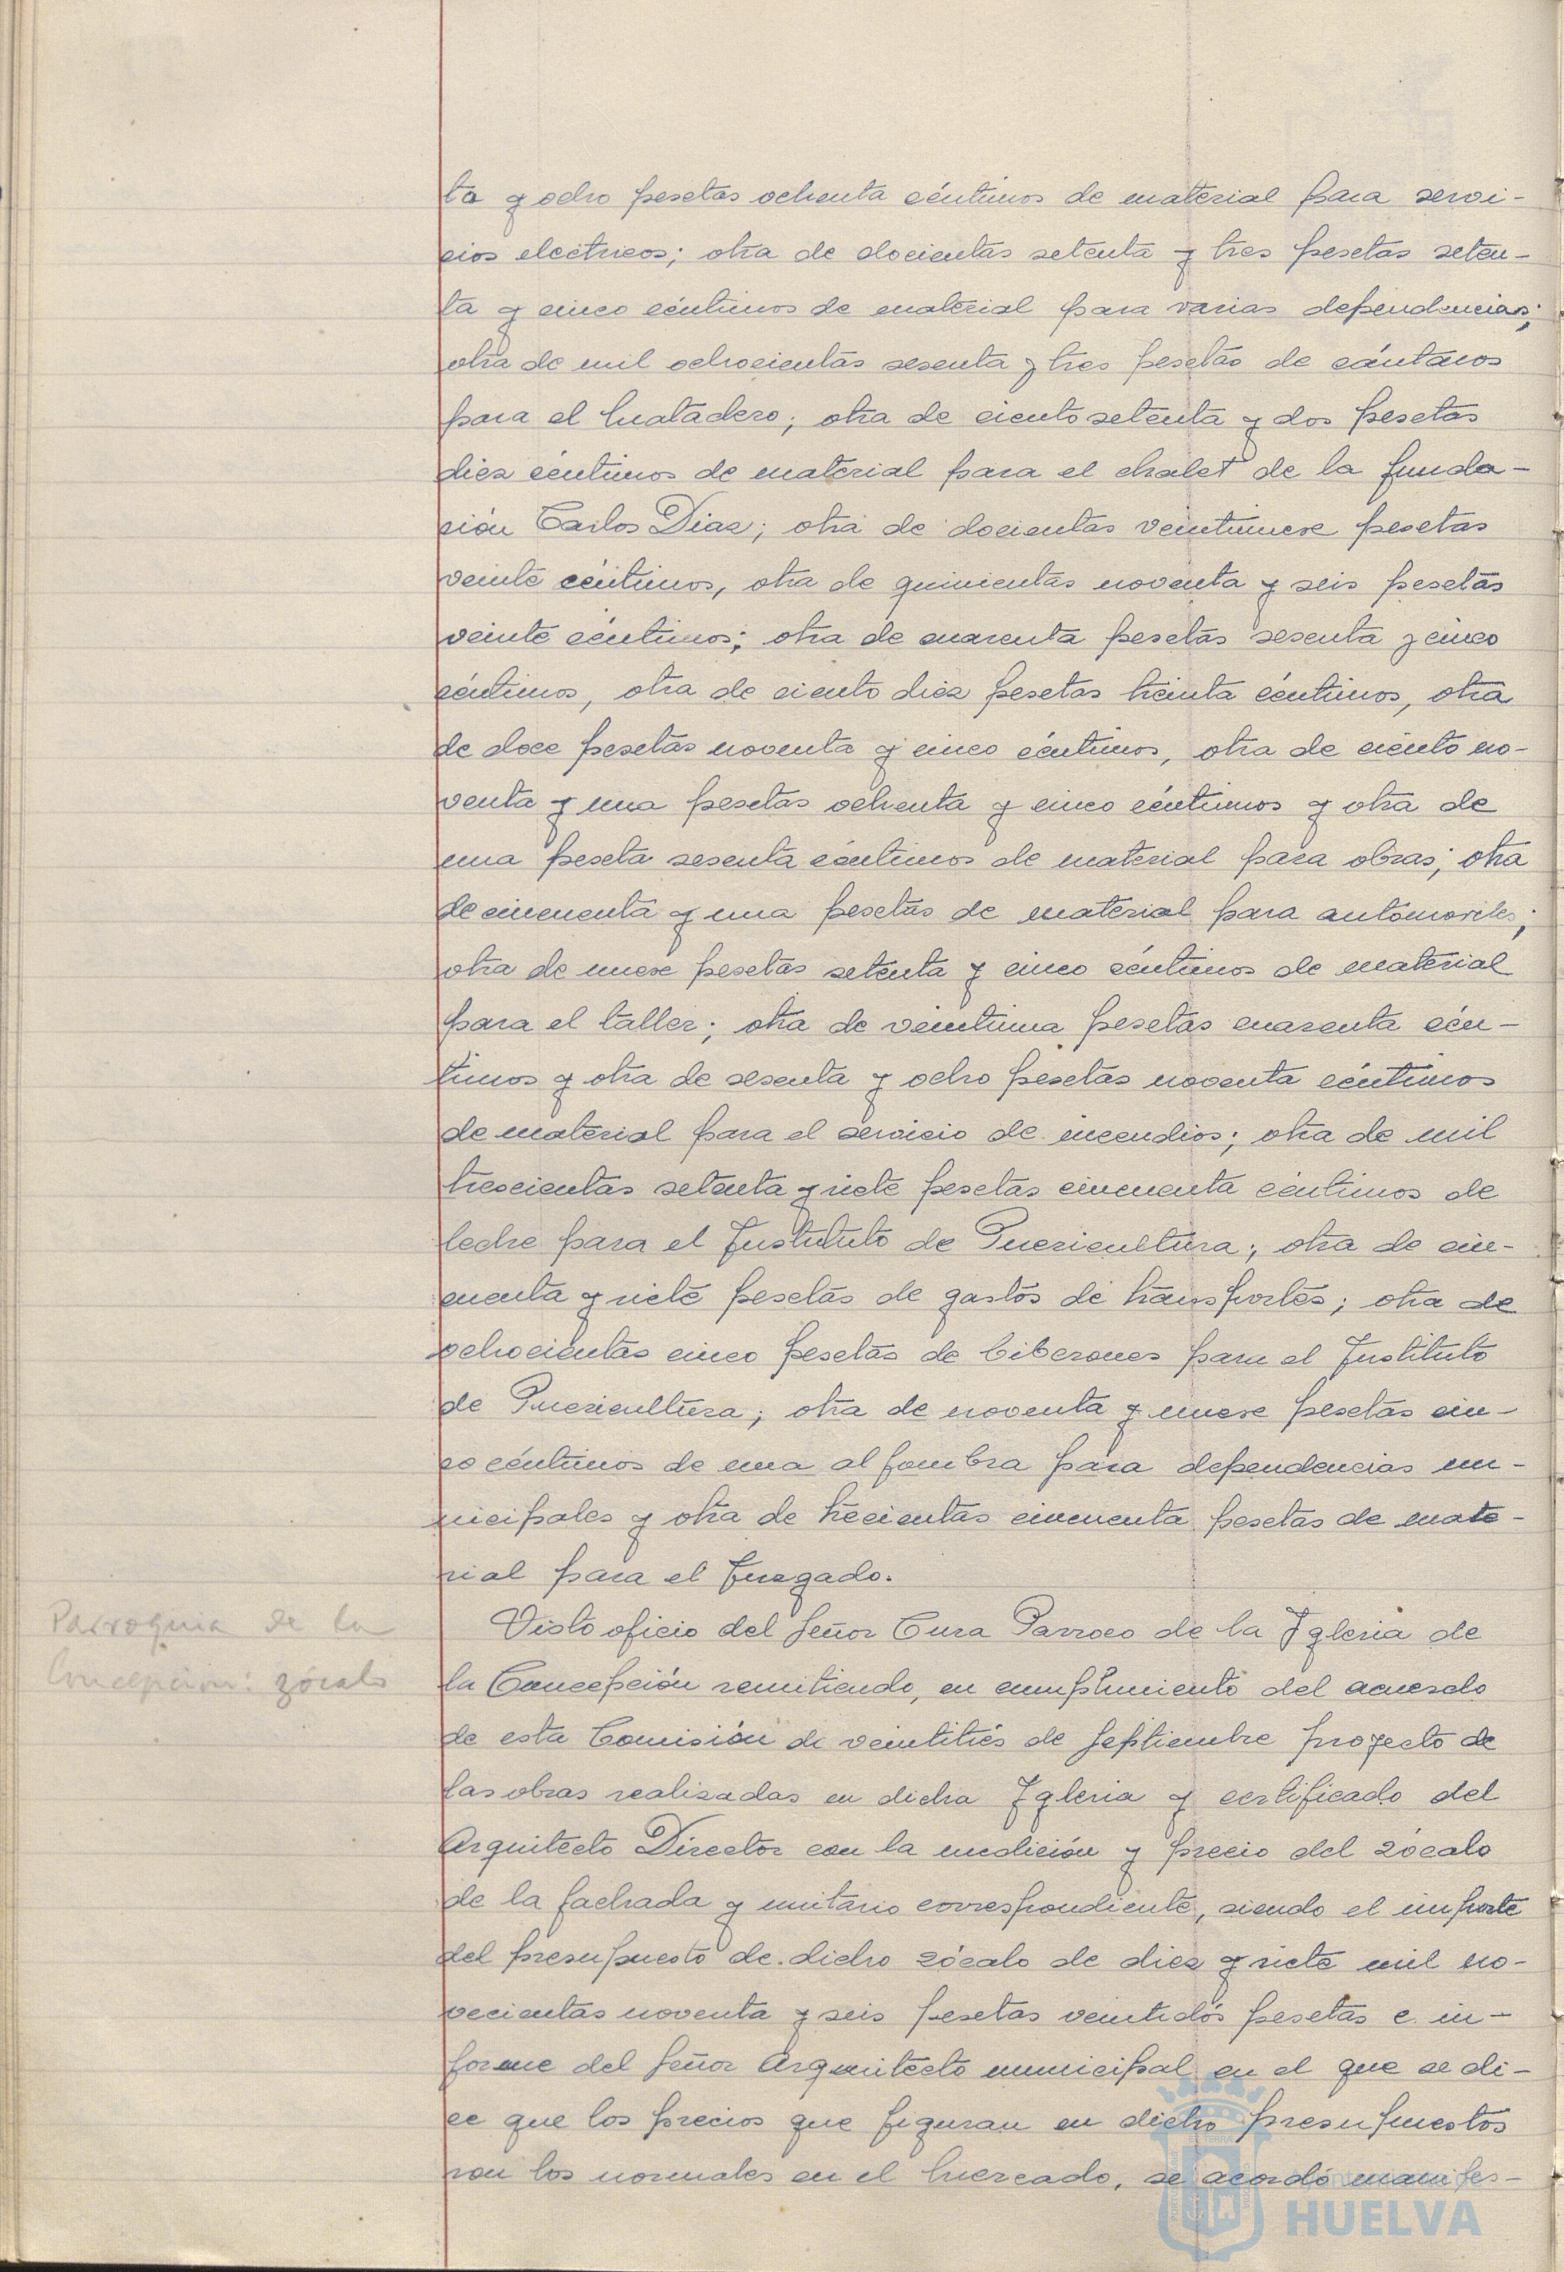 ta y ocho pesetas ochenta céntimos de material para servi-
cios electricos; otra de docientas setenta y tres pesetas seten-
ta y cinco céntimos de material para varias dependencias;
otra de mil ochocientas sesenta y tres pesetas de cántaros
para el Matadero; otra de ciento setenta y dos pesetas
diez céntimos de material para el chalet de la funda-
ción Carlos Diaz; otra de docientas veintinueve pesetas
veinte céntimos, otra de quinientas noventa y seis pesetas
veinte céntimos; otra de cuarenta pesetas sesenta y cinco
céntimos, otra de ciento diez pesetas treinta céntimos, otra
de doce pesetas noventa y cinco céntimos, otra de ciento no-
venta y una pesetas ochenta y cinco céntimos y otra de
una peseta sesenta céntimos de material para obras; otra
de cincuenta y una pesetas de material para automoviles;
otra de nueve pesetas setenta y cinco céntimos de material
para el taller; otra de veintiuna pesetas cuarenta cén-
timos y otra de sesenta y ocho pesetas noventa céntimos
de material para el servicio de incendios; otra de mil
trescientas setenta y siete pesetas cincuenta céntimos de
leche para el Instituto de Puericultura; otra de cin-
cuenta y siete pesetas de gastos de transportes; otra de
ochocientas cinco pesetas de biberones para el Instituto
de Puericultura; otra de noventa y nueve pesetas cin-
co céntimos de una alfombra para dependencias mu-
nicipales y otra de trecientas cincuenta pesetas de mate-
rial para el Juzgado.
Parroquia de la
Concepcion: zócalo
Visto oficio del Señor Cura Parroco de la Iglesia de
la Concepción remitiendo, en cumplimiento del acuerdo
de esta Comisión de veintitrés de Septiembre proyecto de
las obras realizadas en dicha Iglesia y certificado del
Arquitecto Director con la medición y precio del zócalo
de la fachada y unitario correspondiente, siendo el importe
del presupuesto de dicho zócalo de diez y siete mil no-
vecientas noventa y seis pesetas veintidós pesetas e in-
forme del Señor Arquitecto municipal en el que se di-
ce que los precios que figuran en dicho presupuestos
son los normales en el Mercado, se acordó manifes-
HUELVA